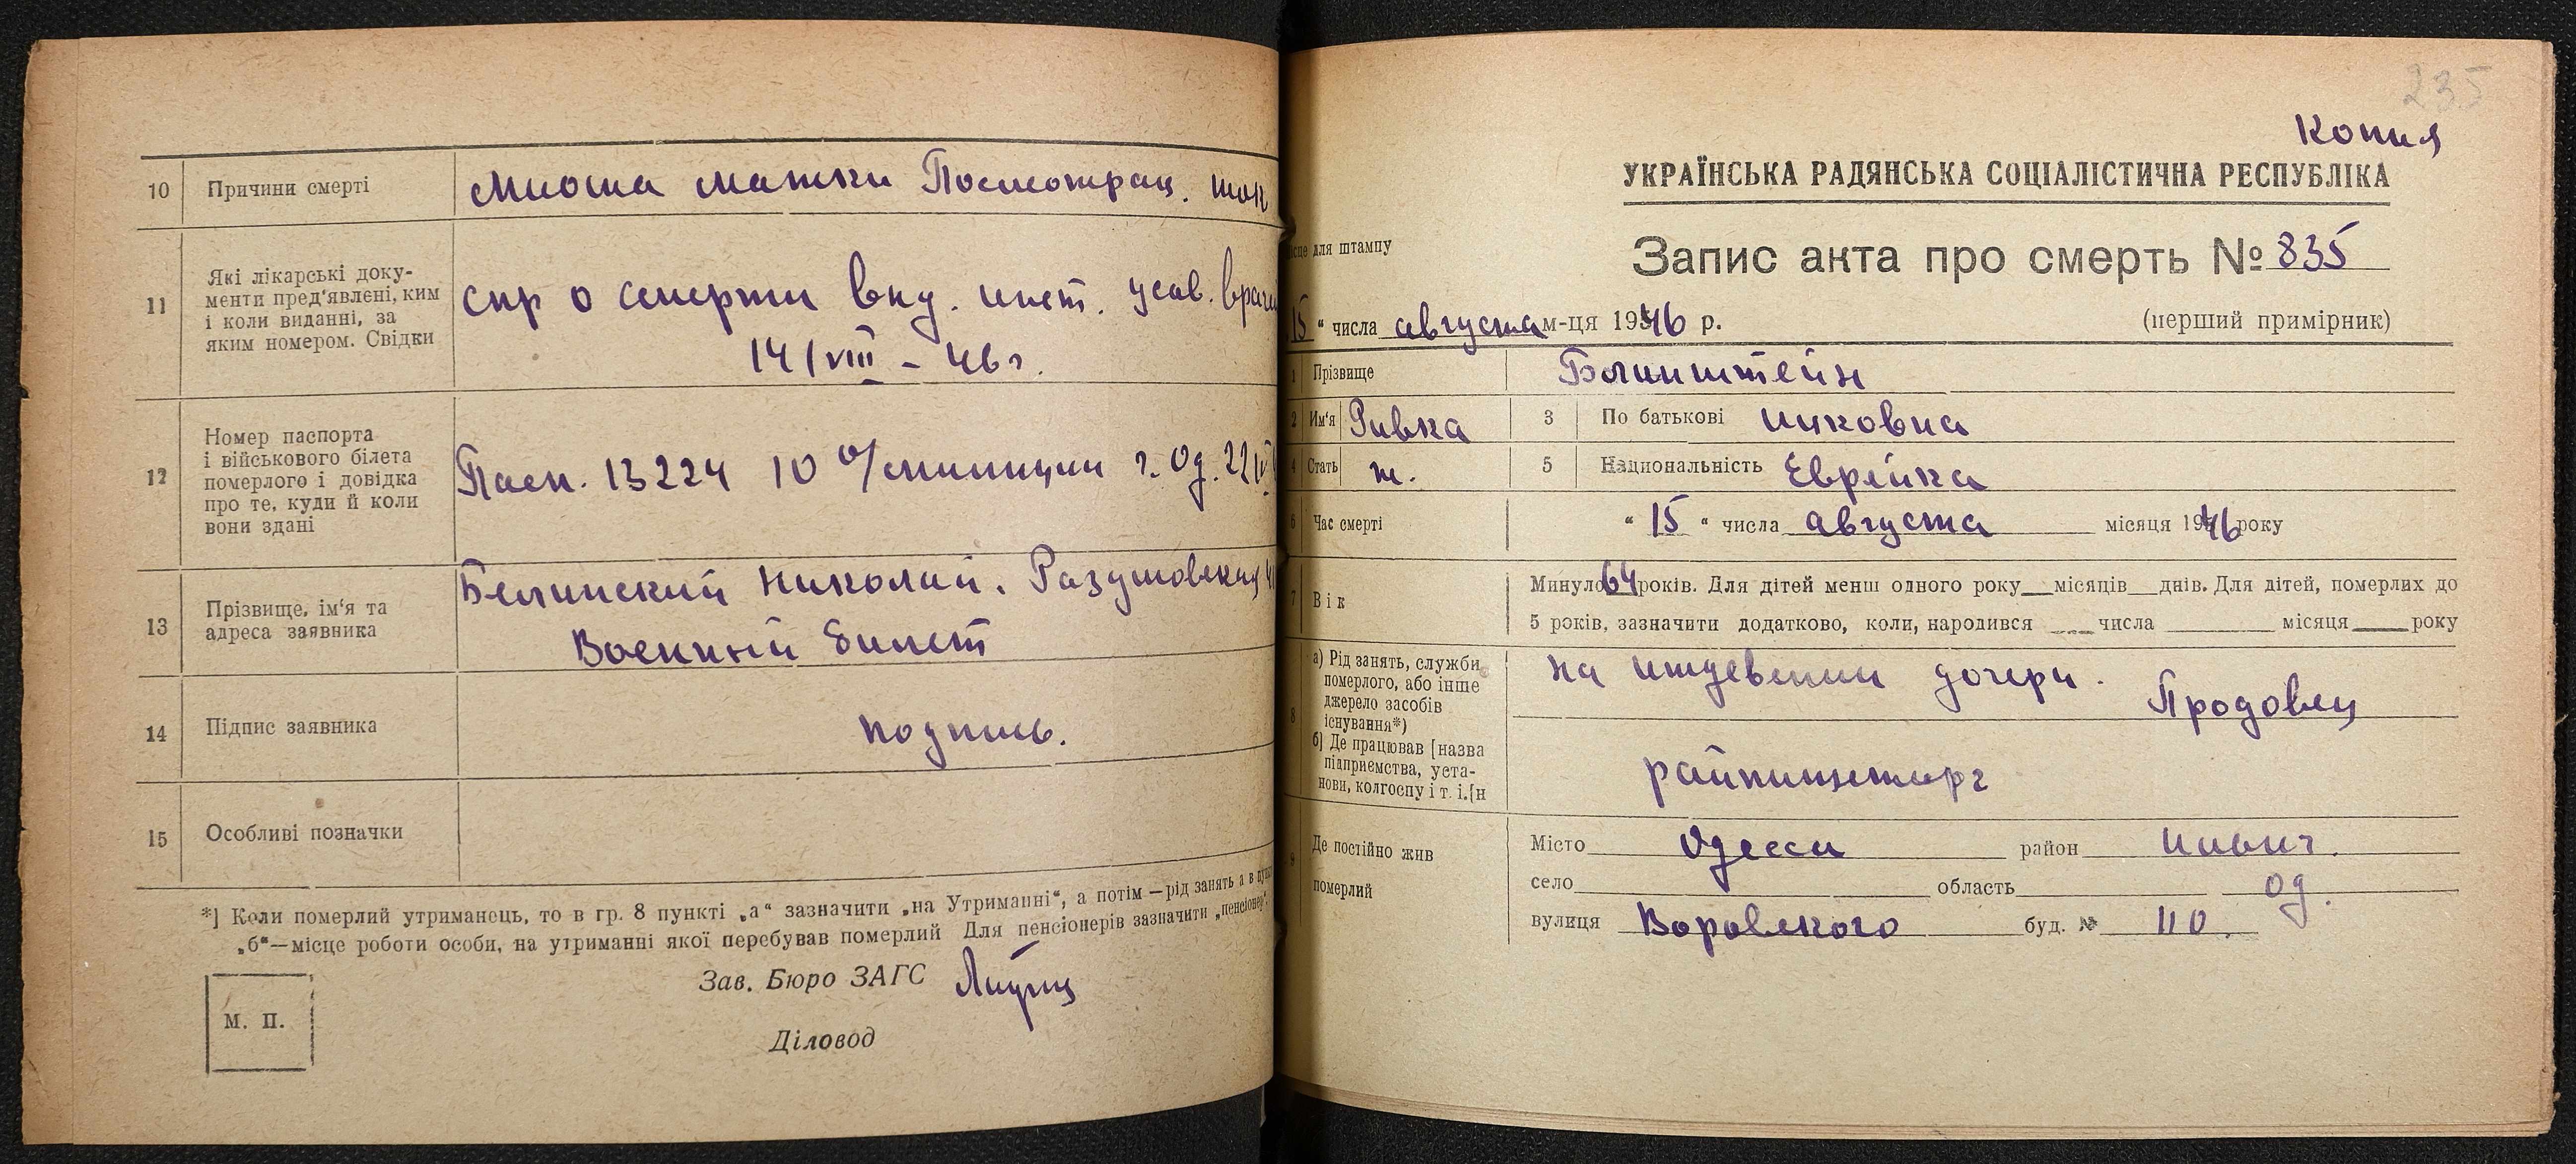 10 Причини смерті Миома матки Послеоперац. шок
11 Які лікарські доку-
менти пред'явлені, ким
і коли виданні, за
яким номером. Свідки
спр о смерти вид. инст. усов. врачей
14/VIII – 46 г.
12 Номер паспорта
і військового білета
померлого і довідка
про те, куди й коли
вони здані
Пасп. 13224 10 о/милиции г. Од. 22
13 Прізвище, ім'я та
адреса заявника
Белинский Николай. Разумовская
Военный билет
14 Підпис заявника подпись.
15 Особливі позначки
*] Коли померлий утриманець, то в гр. 8 пункті „а“ зазначити „на Утриманні“, а потім—рід занять а в пункті
„б“—місце роботи особи, на утриманні якої перебував померлий Для пенсіонерів зазначити „пенсіонер“.
Зав. Бюро ЗАГС
М. П.
Діловод
235
Копия
УКРАЇНСЬКА РАДЯНСЬКА СОЦІАЛІСТИЧНА РЕСПУБЛІКА
для штампу
Запис акта про смерть № 835
15 “ числа августа м-ця 1946 р. (перший примірник)
1 Прізвище
2 Им'я Ривка 3 По батькові Ицковна
4 Стать ж. 5 Національність Еврейка
6 Час смерті “ 15 “ числа августа місяця 1946 року
7 Вік Минуло 64 років. Для дітей менш одного року місяців днів. Для дітей, померлих до
5 років, зазначити додатково, коли, народився числа місяця року
8 а) Рід занять, служби
померлого, або інше
джерело засобів
існування*)
б] Де працював [назва
підприємства, уста-
нови, колгоспу і т. і.[н
на иждевении дочери. Продовец
райпищеторг
9 Де постійно жив
померлий
Місто Одесса район Ильич.
село область Од.
вулиця Воровского буд. № 110.